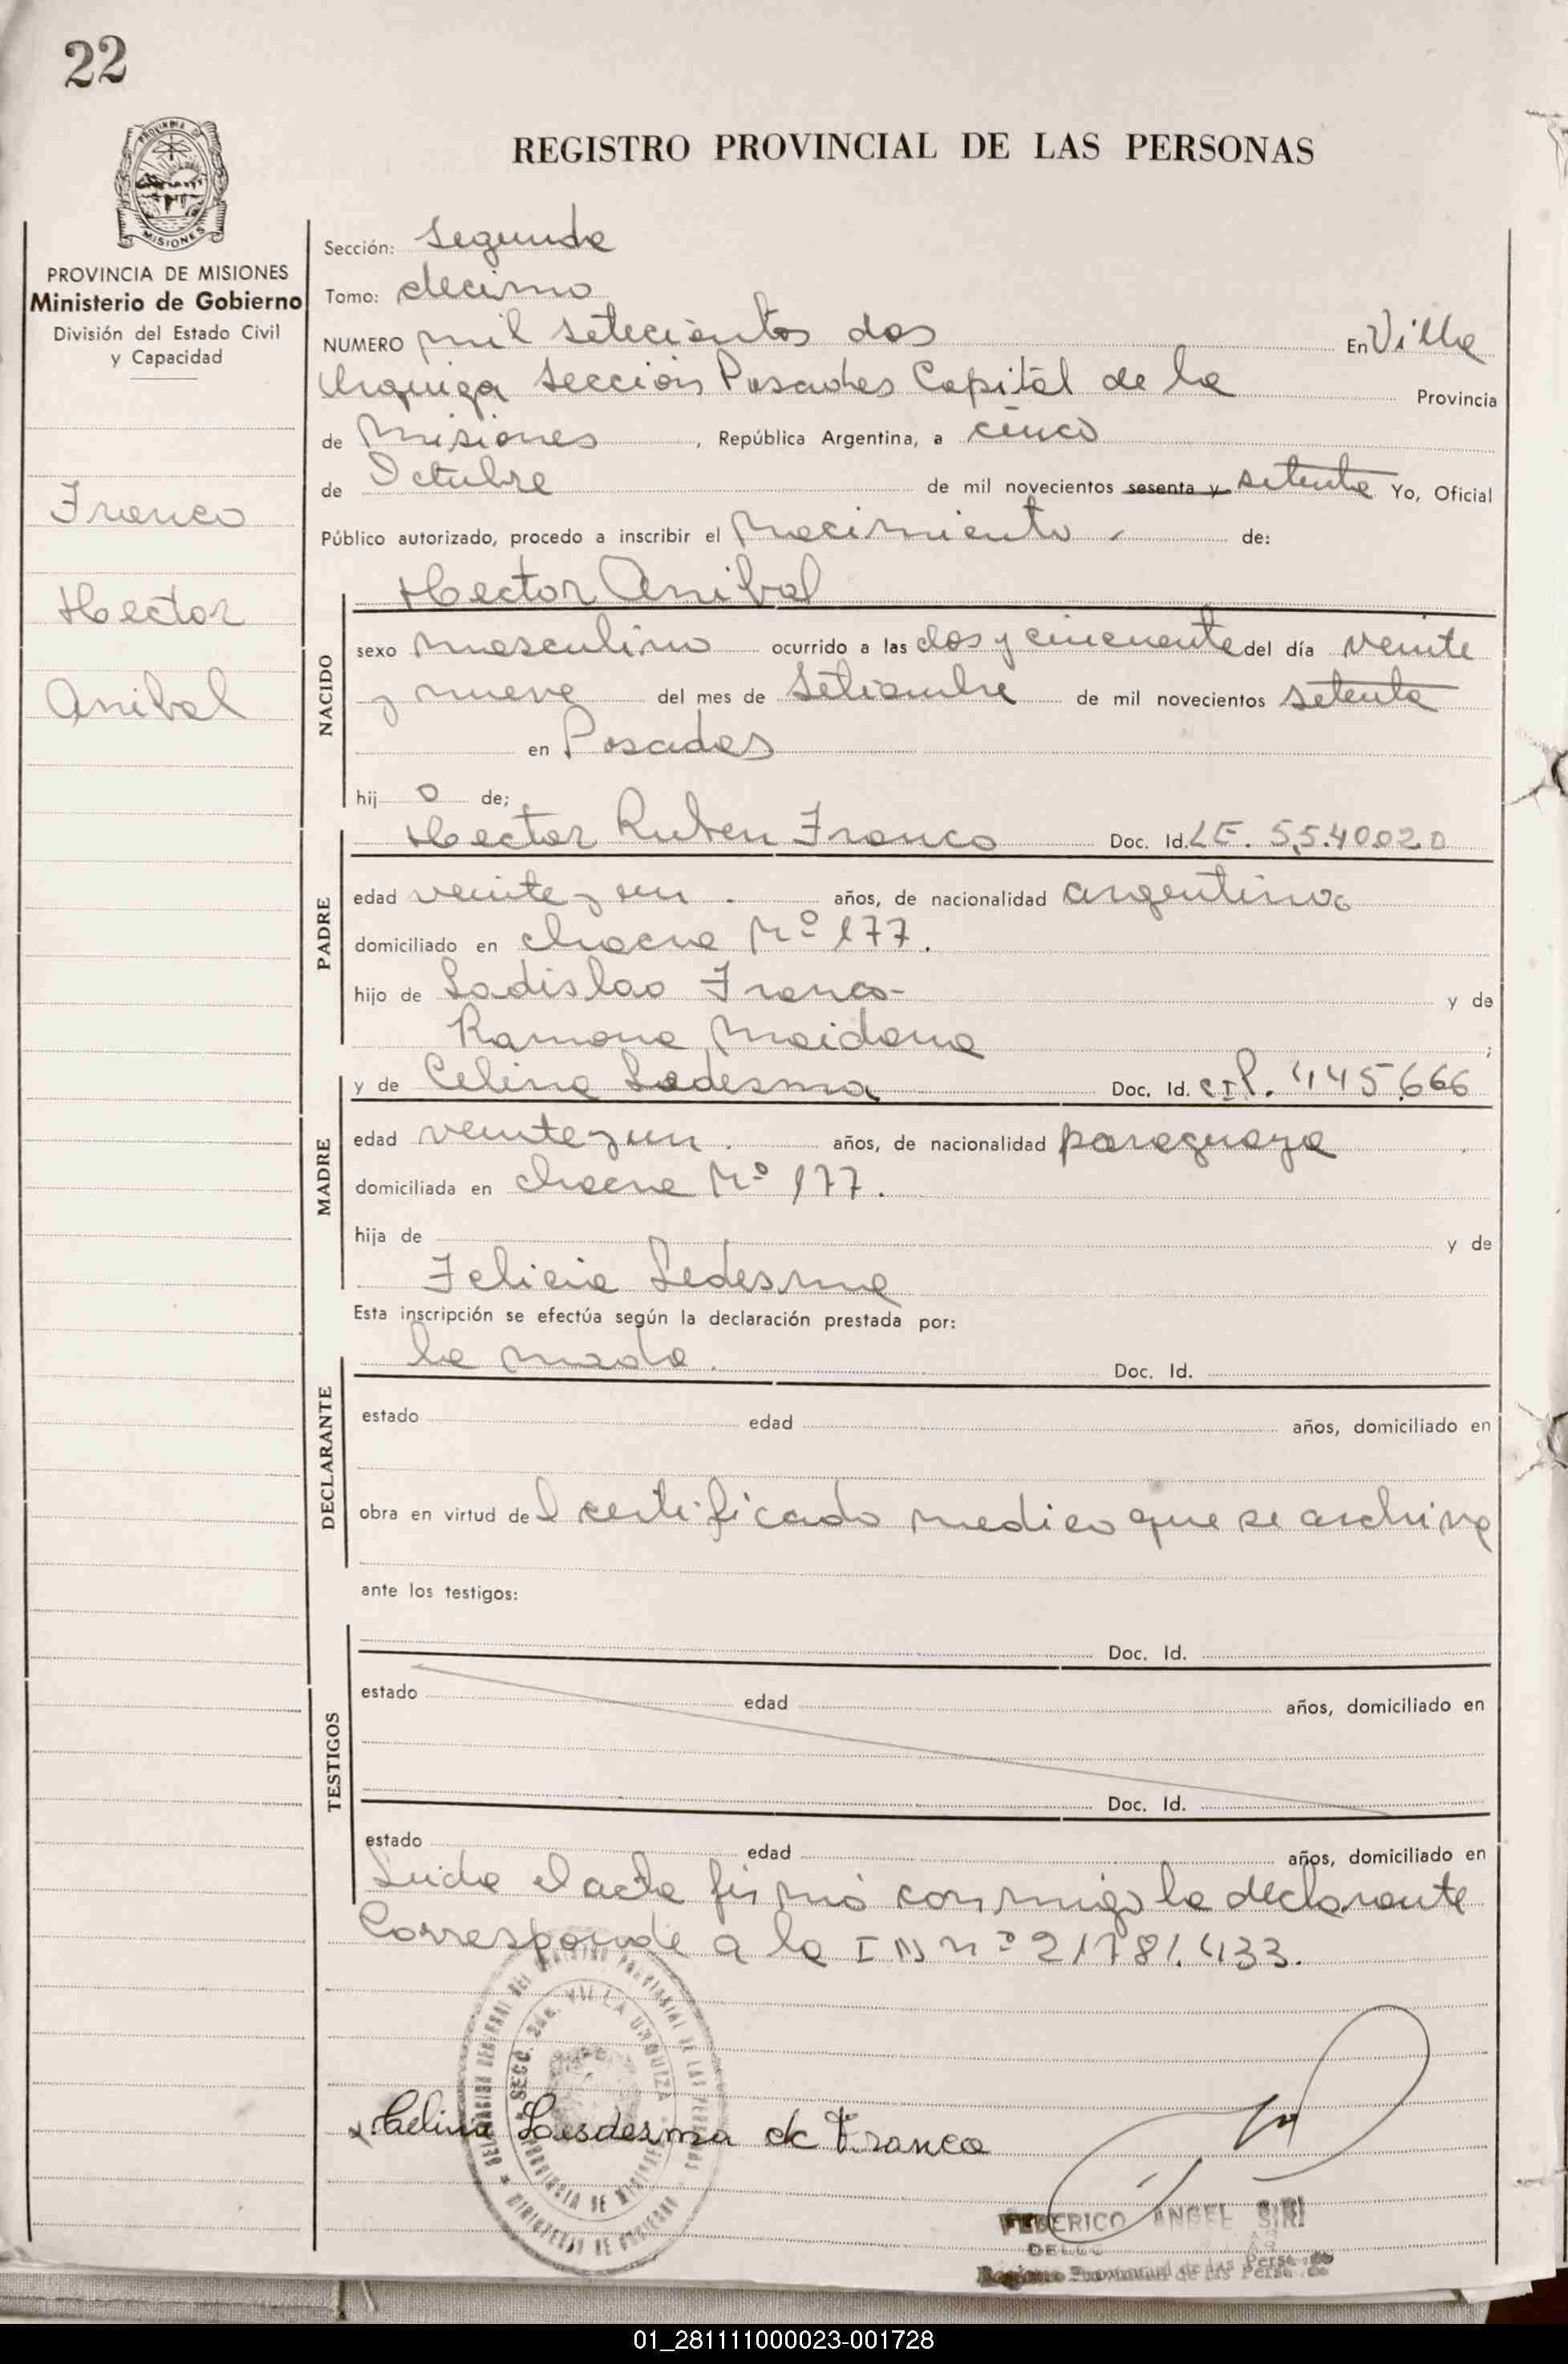 22
REGISTRO PROVINCIAL DE LAS PERSONAS
MISIONES
PROVINCIA DE MISIONES
Ministerio de Gobierno
División del Estado Civil
y Capacidad
Franco
Hector
Anibal
Sección: segunda
Tomo: decimo
NUMERO mil setecientos dos En Villa
Urquiza Sección Posadas Capital de la Provincia
de Misiones, República Argentina, a cinco
de Octubre de mil novecientos sesenta y setenta Yo, Oficial
Público autorizado, procedo a inscribir el nacimiento de:
Hector Anibal
NACIDO
sexo masculino ocurrido a las dos y cincuenta del día veinte
y nueve del mes de Setiembre de mil novecientos setenta
en Posadas
hij o de;
Hector Ruben Franco Doc. Id. LE. 5.540.020
PADRE
edad veinte y un años, de nacionalidad argentino
domiciliado en chacra Nº 177.
hijo de Ladislao Franco- y de
Ramona Maidana;
y de Celina Ledesma Doc. Id. 445.666
MADRE
edad veinte y un años, de nacionalidad paraguaya
domiciliada en chacra Nº 177.
hija de y de
Felicia Ledesma
Esta inscripción se efectúa según la declaración prestada por:
la madre. Doc. Id.
DECLARANTE
estado edad años, domiciliado en
obra en virtud del certificado medico que se archiva
ante los testigos:
Doc. Id.
TESTIGOS
estado edad años, domiciliado en
Doc. Id.
estado edad años, domiciliado en
Leida el acta firmó conmigo la declarante
Corresponde a la I N nº 21781.433.
SECC. 2da. VILLA URQUIZA
PROVINCIA DE MISIONES
Celina Lesdezma de Franco
FEDERICO ANGEL SIRI
01_281111000023-001728